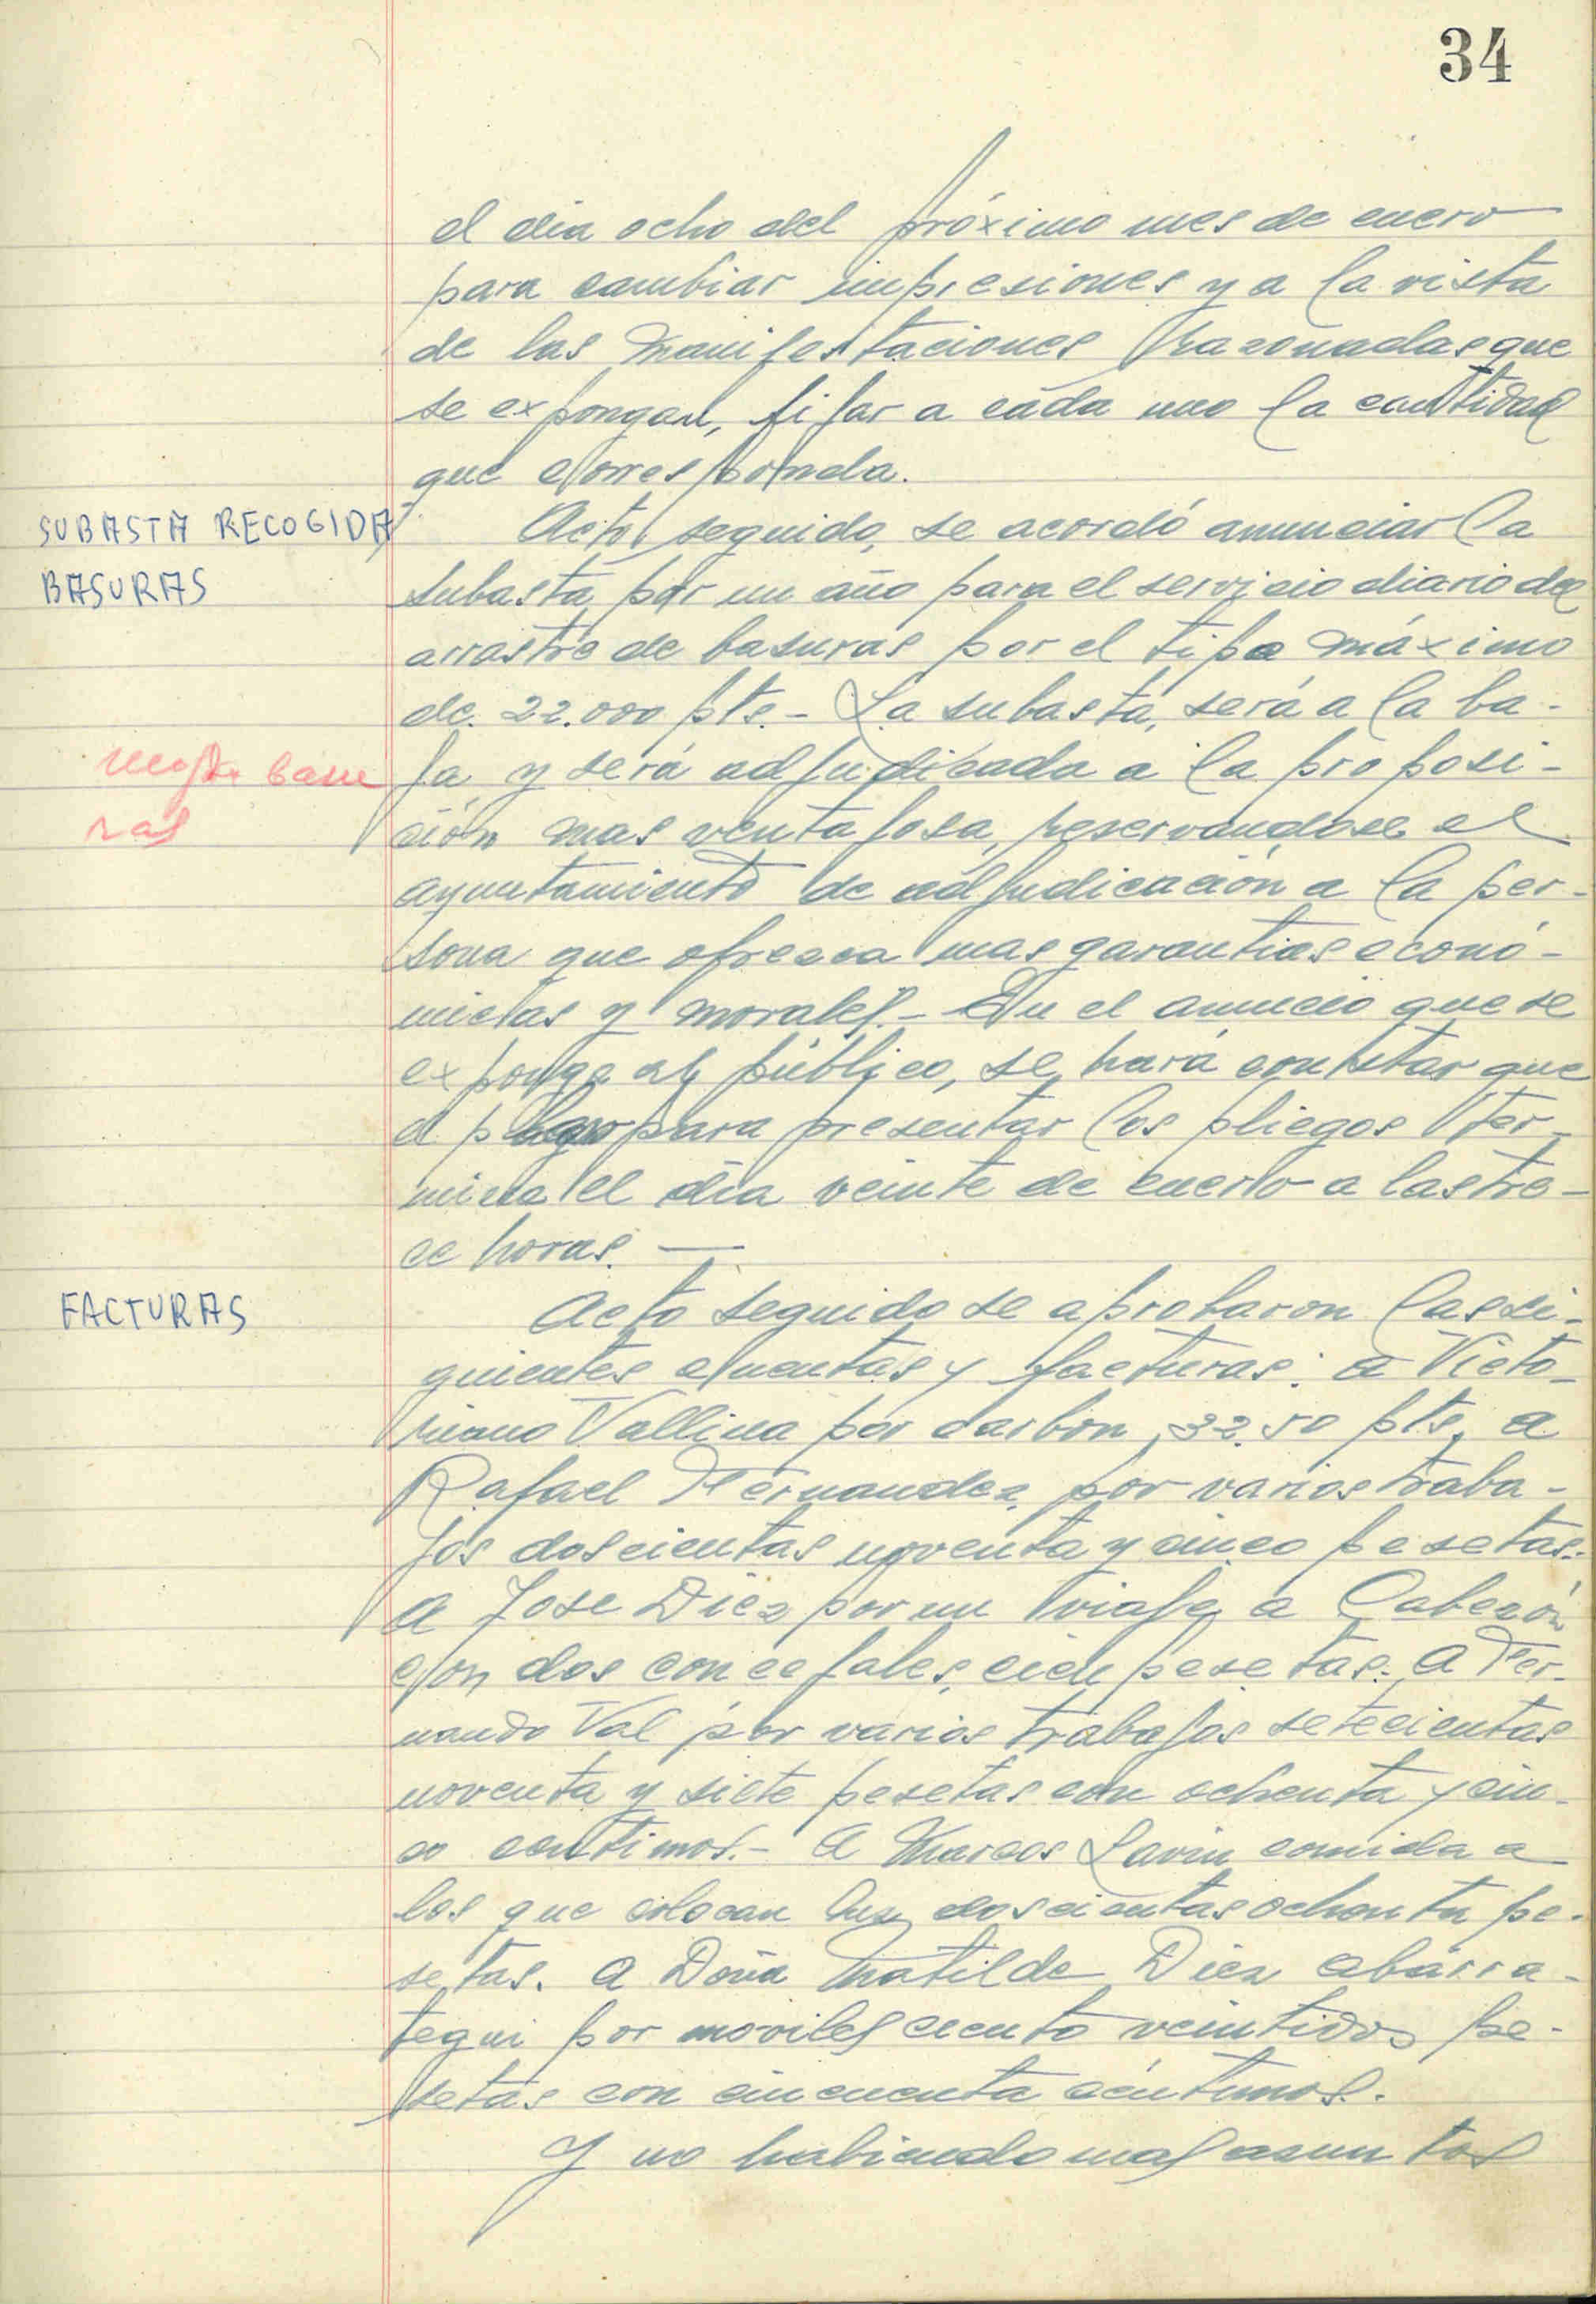 34
el dia ocho del próximo mes de enero
para cambiar impresiones y a la vista
de las manifestaciones razonadas que
se expongan, fijar a cada uno la cantidad
que corresponda.
SUBASTA RECOGIDA
BASURAS
Acto seguido, se acordó anunciar la
subasta por un año para el servicio diario del
arrastre de basuras por el tipo máximo
de 22.000 pts.- La subasta, será a la ba-
ja y será adjudicada a la proposi-
ción mas ventajosa, reservandose el
ayuntamiento de adjudicación a la per-
sona que ofrezca mas garantias econó-
micas y morales.- En el anuncio que se
exponga al público, se hará constar que
el plazo para presentar los pliegos ter-
mina el dia veinte de enero a las tre-
ce horas.
FACTURAS
Acto seguido se aprobaron las si-
guientes cuentas y facturas: a Victo-
riano Vallina por carbon, 32.50 pts, a
Rafael Fernandez por varios traba-
jos doscientas noventa y cinco pesetas.-
a Jose Diez por un viaje a Cabezón
con dos concejales, cien pesetas. a Fer-
nando Val por varios trabajos setecientas
noventa y siete pesetas con ochenta y cin-
co centimos.- a Marcos Lavin comida a
los que colocan luz doscientas ochenta pe-
setas. a Doña Matilde Diez abarra-
tegui por moviles ciento veintidos pe-
setas con cincuenta céntimos.
Y no habiendo mas asuntos